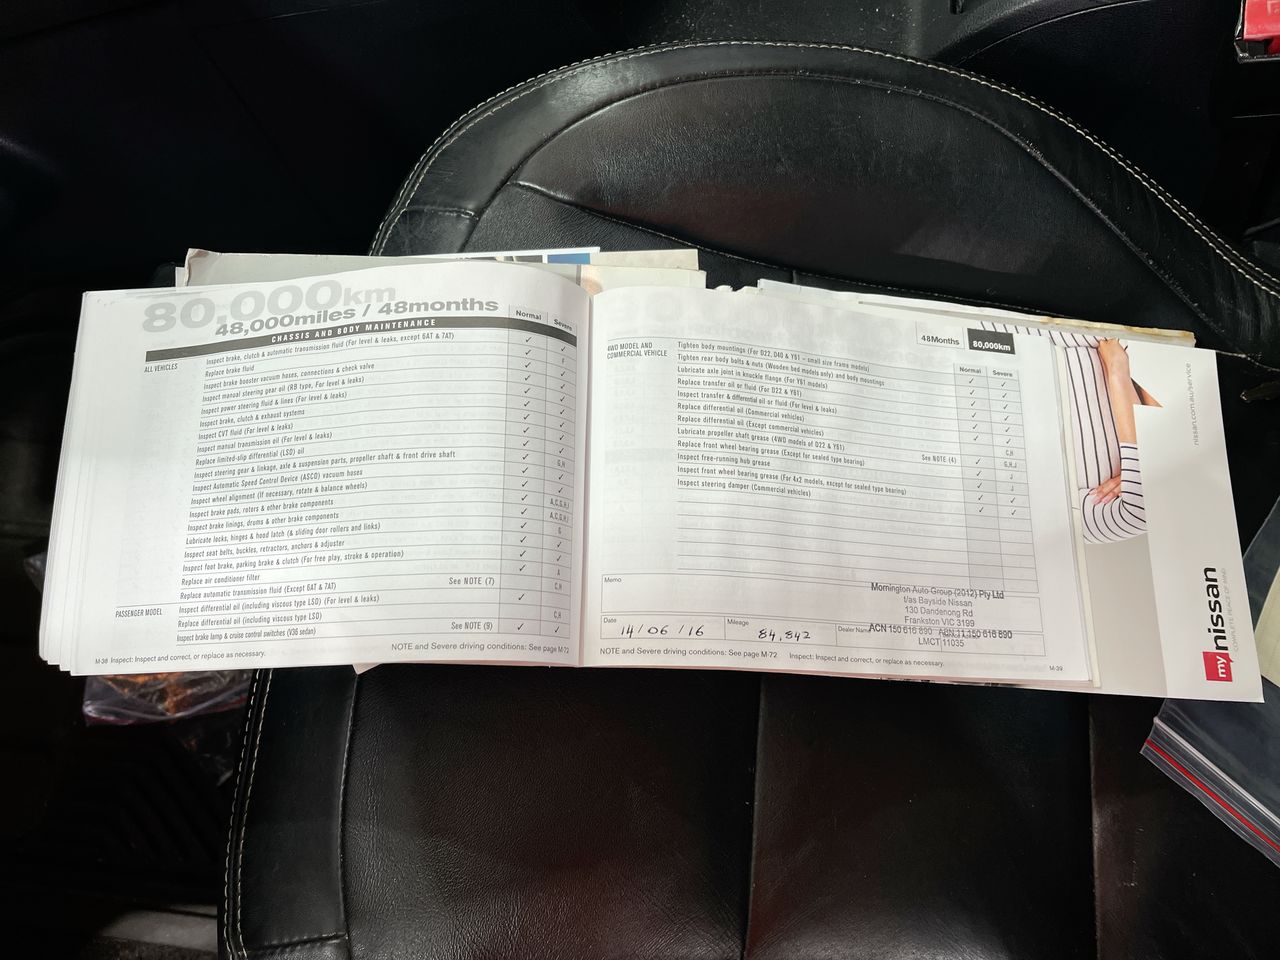 80,000km
48,000miles / 48months
Normal
Severe
CHASSIS AND BODY MAINTENANCE
ALL VEHICLES
Inspect brake, clutch & automatic transmission fluid (For level & leaks, except 6AT & 7AT) ✓
Replace brake fluid ✓
Inspect brake booster vacuum hoses, connections & check valve ✓
Inspect manual steering gear oil (RB type, For level & leaks) ✓
Inspect power steering fluid & lines (For level & leaks) ✓
Inspect brake, clutch & exhaust systems ✓
Inspect CVT fluid (For level & leaks) ✓
Inspect manual transmission oil (For level & leaks) ✓
Replace limited-slip differential (LSD) oil
Inspect steering gear & linkage, axle & suspension parts, propeller shaft & front drive shaft
G,H
Inspect Automatic Speed Control Device (ASCD) vacuum hoses
Inspect wheel alignment (If necessary, rotate & balance wheels)
Inspect brake pads, rotors & other brake components
A,C,G,H,I
Inspect brake linings, drums & other brake components
A,C,G,H,I
Lubricate locks, hinges & hood latch (& sliding door rollers and links)
G
Inspect seat belts, buckles, retractors, anchors & adjuster
Inspect foot brake, parking brake & clutch (For free play, stroke & operation)
A
Replace air conditioner filter
Replace automatic transmission fluid (Except 6AT & 7AT) See NOTE (7)
C,H
PASSENGER MODEL
Inspect differential oil (including viscous type LSD) (For level & leaks) ✓
Replace differential oil (including viscous type LSD)
C,H
Inspect brake lamp & cruise control switches (V36 sedan) See NOTE (9) ✓ ✓
M-38 Inspect: Inspect and correct, or replace as necessary.
NOTE and Severe driving conditions: See page M-72
48Months 80,000km
4WD MODEL AND
COMMERCIAL VEHICLE
Normal Severe
Tighten body mountings (For D22, D40 & Y61 – small size frame models)
Tighten rear body bolts & nuts (Wooden bed models only) and body mountings
Lubricate axle joint in knuckle flange (For Y61 models)
Replace transfer oil or fluid (For D22 & Y61)
Inspect transfer & differential oil or fluid (For level & leaks)
Replace differential oil (Commercial vehicles)
Replace differential oil (Except commercial vehicles)
C,H
Lubricate propeller shaft grease (4WD models of D22 & Y61)
G,H,J
Replace front wheel bearing grease (Except for sealed type bearing) See NOTE (4)
Inspect free-running hub grease
Inspect front wheel bearing grease (For 4x2 models, except for sealed type bearing)
Inspect steering damper (Commercial vehicles) ✓ ✓
Memo
Mornington Auto Group (2012) Pty Ltd
t/as Bayside Nissan
130 Dandenong Rd
Frankston VIC 3199
ACN 150 616 890 ABN 11 150 616 890
LMCT 11035
Date
14/06/16
Mileage
84,842
Dealer Name
NOTE and Severe driving conditions: See page M-72
Inspect: Inspect and correct, or replace as necessary.
M-39
nissan.com.au/service
my nissan
COMPLETE PEACE OF MIND